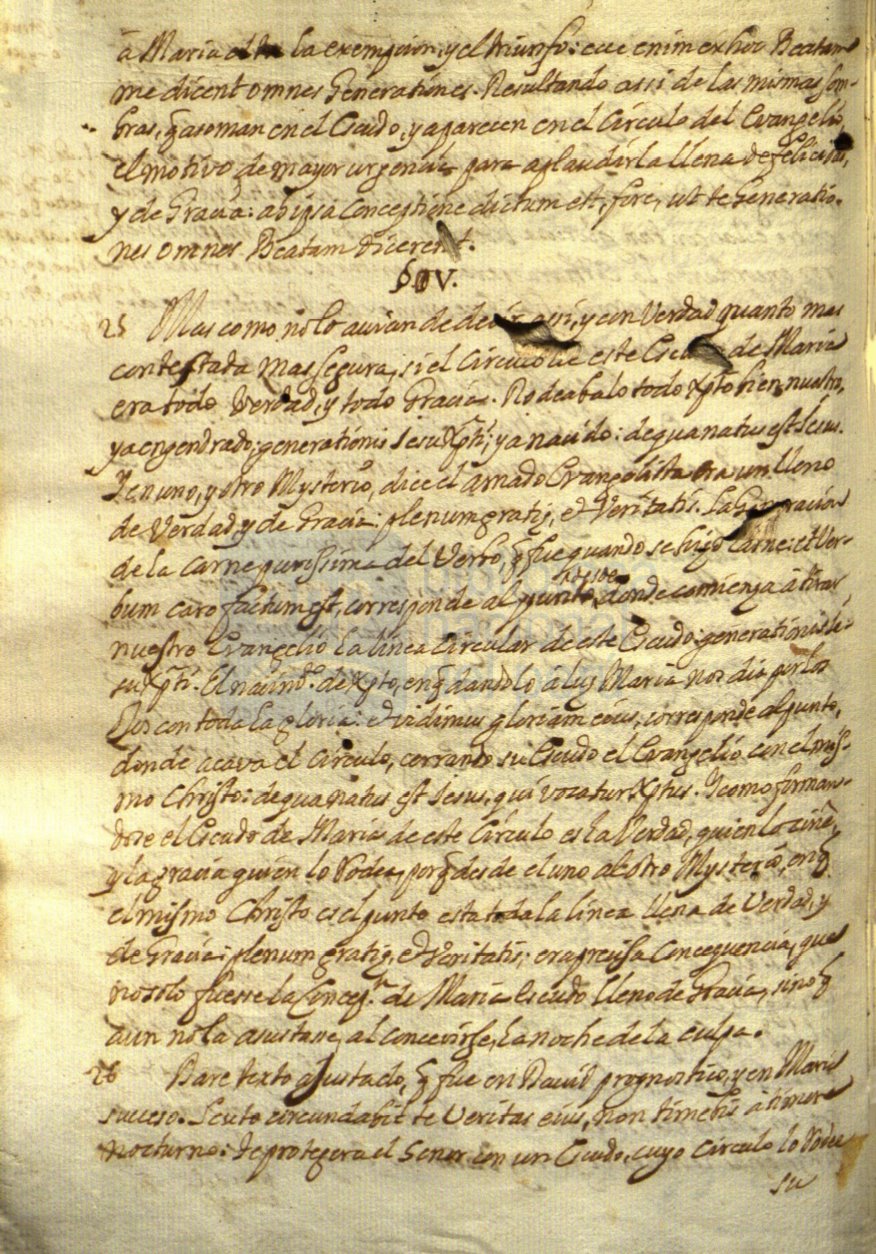 à Maria esta la exempcion, y el triunfo: ecce enim ex hoc Beatam
me dicent omnes Generationes. Resultando assi de las mismas som-
bras, q̃ asoman en el Escudo, y aparecen en el Circulo del Evangelio,
el motivo de mayor urgencia para aplaudirla llena de felicidad,
y de Gracia: ab ipsa Conceptione dictum est, fore, ut te Generatio-
nes omnes Beatam dicerent.
§ IV.
25 Mas como no lo avian de decir assi, y con Verdad quanto mas
contestada mas segura, si el Circulo de este Escudo de Maria
era todo Verdad, y todo Gracia. Rodeabalo todo Xpto bien nuestro,
ya engendrado; generationis Iesu Xpti; ya nacido: de qua natus est Iesus.
I en uno, y otro Mysterio, dice el amado Evangelista era un lleno
de Verdad, y de Gracia: plenum gratiȩ, et Veritatis. La Generacion
de la carne purissima del Verbo, q̃ fue quando se hizo Carne: et Ver-
bum caro factum est, corresponde al punto, donde comienza à tirar
nuestro Evangelio la linea circular de este Escudo: generationis Ie-
su Xpti. El nacim.to de Xpto, en q̃ dandolo à luz Maria nos dio por los
ojos con toda la gloria: et vidimus gloriam eius, corresponde al punto,
donde acava el circulo, cerrando su Escudo el Evangelio con el mis-
mo Christo: de qua natus est Iesus, qui vocatur Xptus. I como forman-
dose el Escudo de Maria de este Circulo es la Verdad, quien lo ciñe,
y la gracia quien lo Rodea, porq̃ desde el uno al otro Mysterio, en q̃
el mismo Christo es el punto esta toda la linea llena de Verdad, y
de Gracia: plenum gratiȩ, et Veritatis; era precisa Consequencia, que
no solo fuesse la Concep.n de Maria Escudo lleno de Gracia, sino q̃
aun no la asustase, al concevirse, la noche de la culpa.
26 Dare texto ajustado, q̃ fue en David prognostico, y en Maria
sucesso. Scuto circundabit te Veritas eius, non timebis à timore
nocturno: te protegera el Señor con un Escudo, cuyo Circulo lo Rodea
su